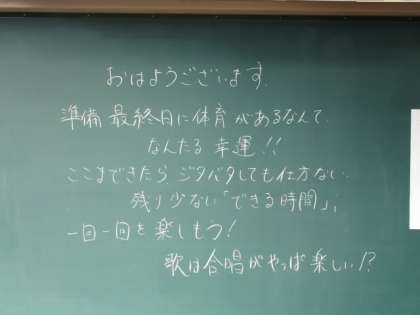 おはようございます.
準備最終日に体育があるなんて.
なんたる幸運!!
ここまできたらジタバタしても仕方ない.
残り少ない「できる時間」,
一回一回を楽しもう!
歌は合唱がやっぱ楽しい!?